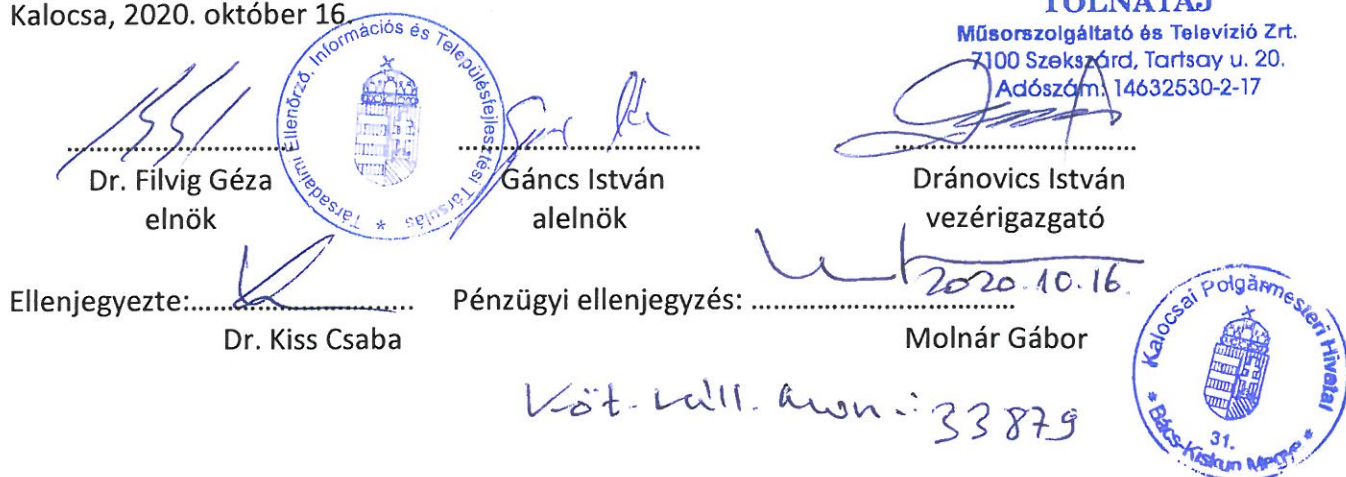 Kalocsa, 2020. október 16.
TOLNATÁJ
Műsorszolgáltató és Televízió Zrt.
7100 Szekszárd, Tartsay u. 20.
Adószám: 14632530-2-17
Társadalmi Ellenőrző, Információs és Településfejlesztési Társulás *
Dr. Filvig Géza
elnök
Gáncs István
alelnök
Dránovics István
vezérigazgató
2020.10.16.
Ellenjegyezte:.....................
Pénzügyi ellenjegyzés: .........................
Dr. Kiss Csaba
Molnár Gábor
Kalocsai Polgármesteri Hivatal
* Bács-Kiskun Megye *
31.
Köt. váll. azon.: 33879